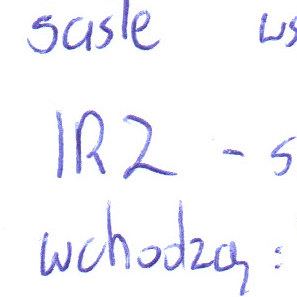 sasle ws
IR2 - s
wchodzą: